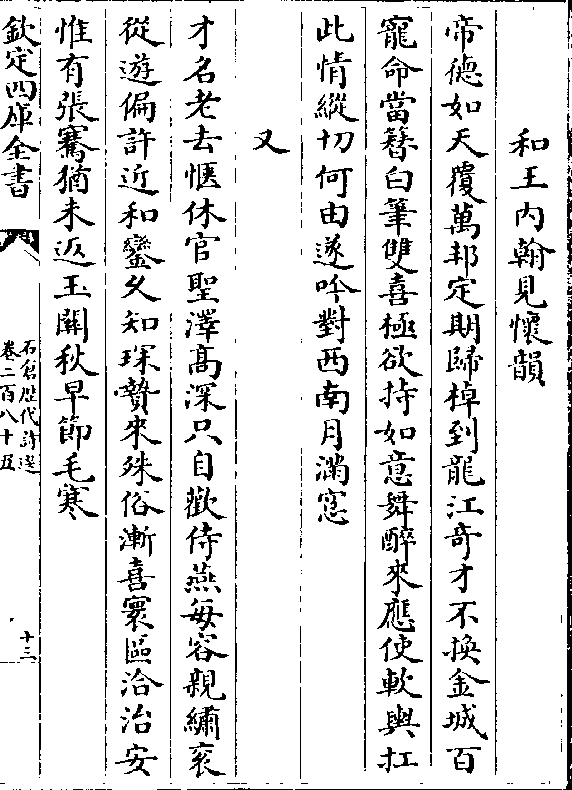 和王内翰見懷韻
帝德如天覆萬邦定期歸棹到龍江竒才不換金城百
寵命當簪白筆雙喜極欲持如意舞醉來應使軟輿扛
此情縱切何由遂吟對西南月滿窓
又
才名老去愜休官聖澤髙深只自歡侍燕每容親繡衮
從遊偏許近和鑾乆知琛贄來殊俗漸喜寰區洽治安
惟有張騫猶未返玉關秋早節毛寒
欽定四庫全書
石倉歴代詩選
卷二百八十五
十三